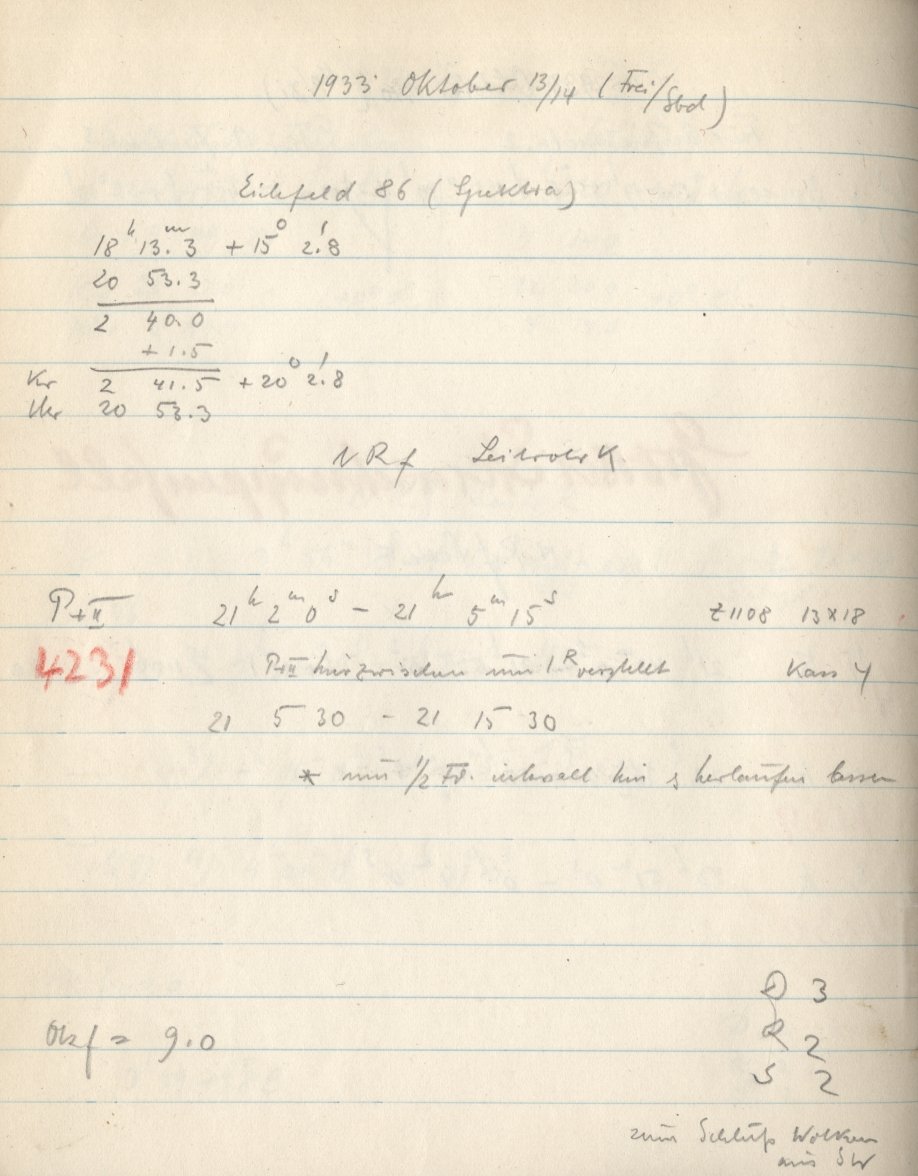 1933 Oktober 13/14 (Frei/Sbd)
Eichfeld 86 (Spektra)
18h 13m.3 +15° 2'.8
20 53.3
2 40.0
+1.5
Kr 2 41.5 +20° 2'.8
Uhr 20 53.3
NRf Leitrohr K
P+II 21h 2m 0s - 21h 5m 15s Z1108 13x18
4231 P+II hierzwischen um 1R verstellt Kass 4
21 5 30 - 21 15 30
* um 1/2 Fd. intervall hin & herlaufen lassen
Okf = 9.0
D 3
R 2
S 2
zum Schluß Wolken
aus SW